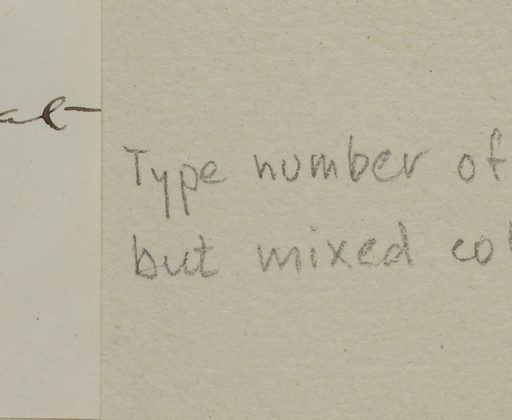 Type number of
but mixed col